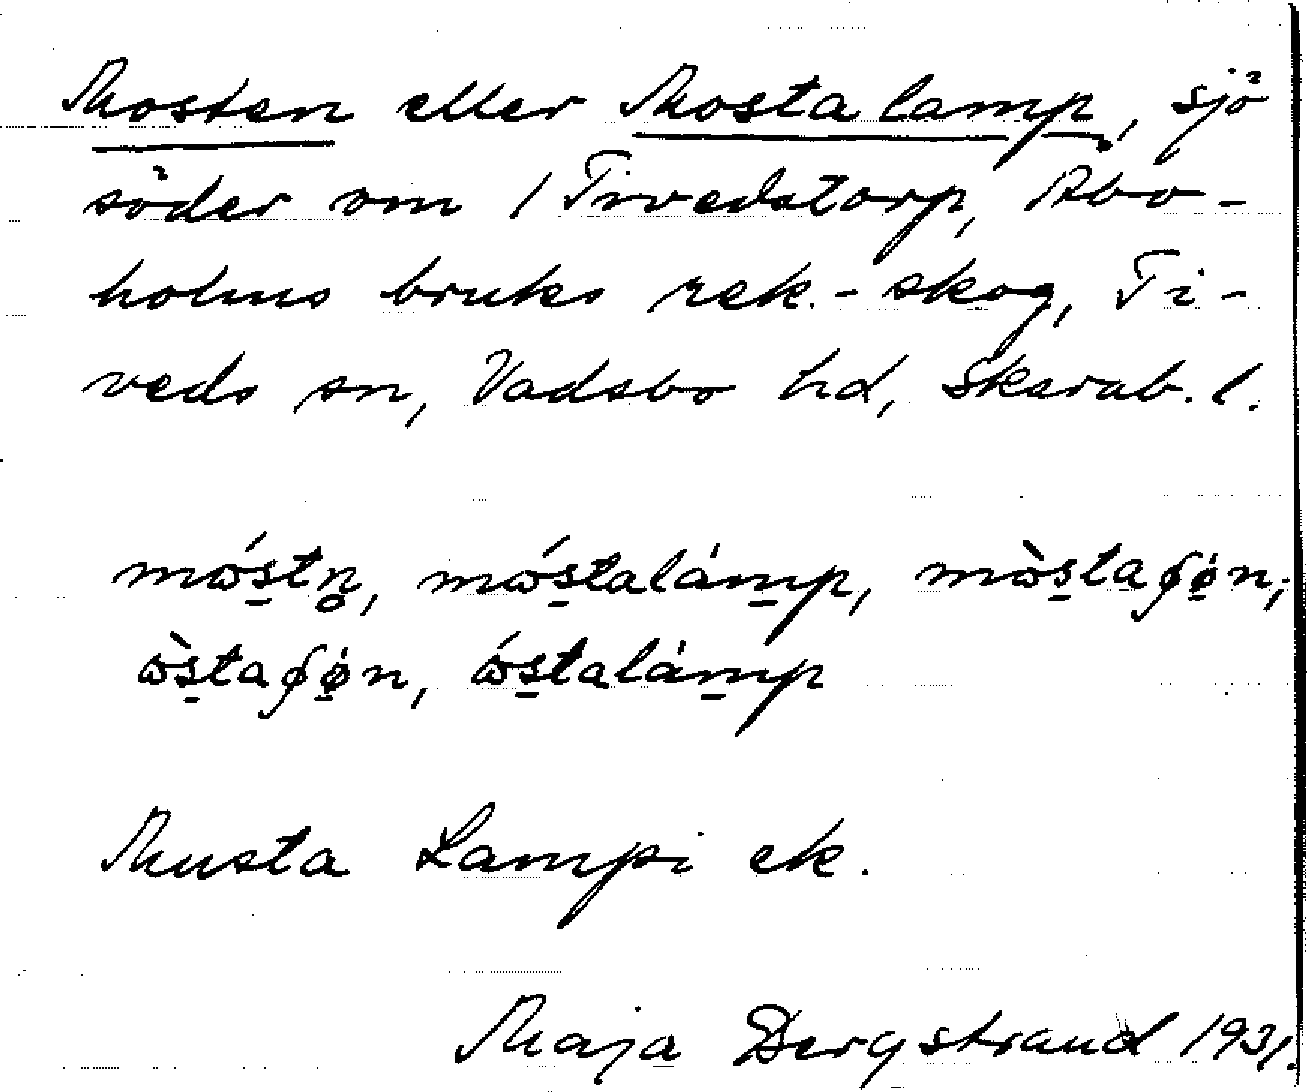 Mosten eller Mostalamp, sjö
söder om 1 Tivedstorp, Abo-
holms bruks rek.-skog, Ti-
veds sn, Vadsbo hd, Skarab. l.
mɷ́s̠tn̥, mɷ́s̠talám̠p, mɷ̀s̠taʃø̠n,
ɷ̀s̠taʃø̠n, ɷ́s̠talám̠p
Musta Lampi ek.
Maja Bergstrand 1931.